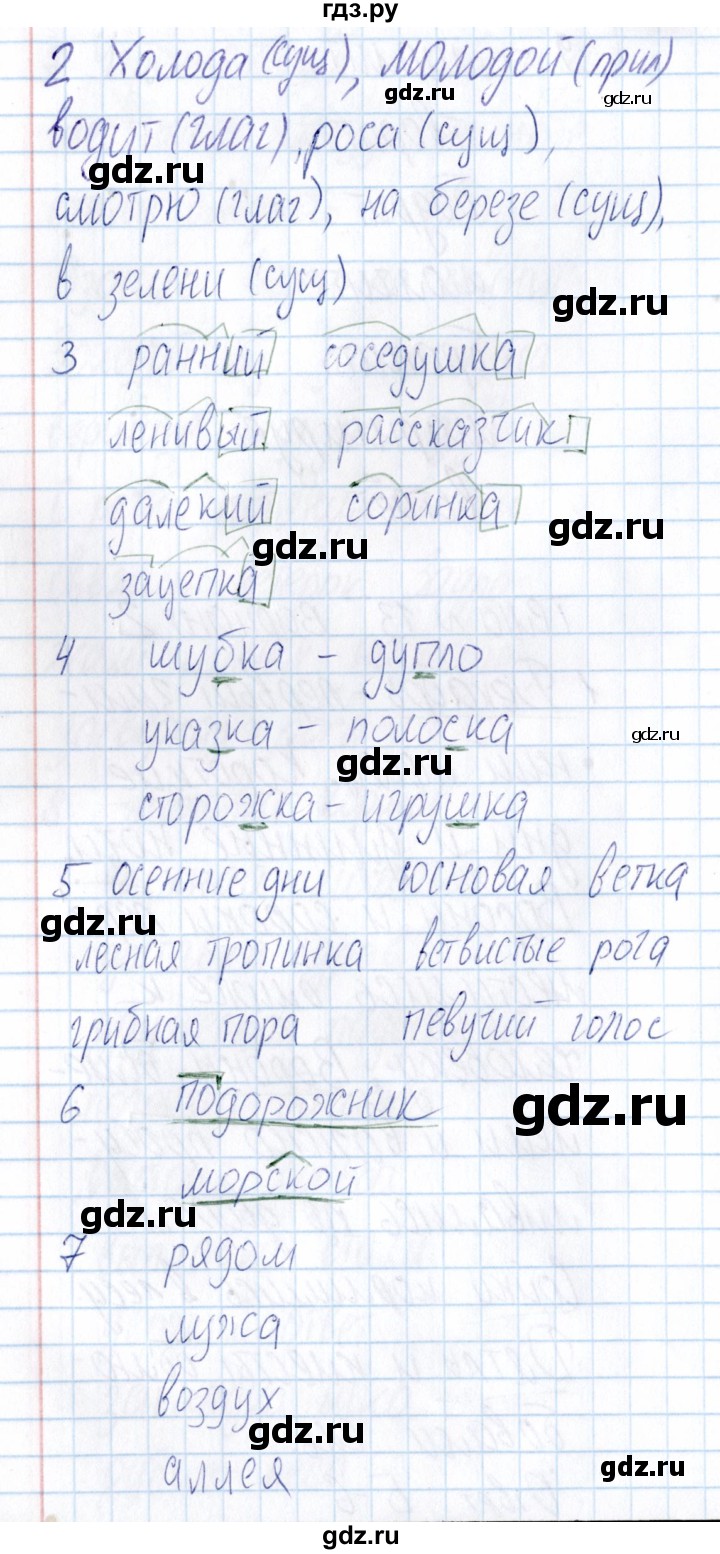 гдз.ру
2 Холода (сущ), молодой (прил)
gdz.ru gdz.ru
водит (глаг), роса (сущ),
gdz.ru
смотрю (глаг), на березе (сущ),
в зелени (сущ)
gdz.ru
3 ранний соседушка
ленивый рассказчик
далекий соринка
gdz.ru
gdz.ru
зацепка
4 шубка – дупло
указка – полоска
gdz.ru
gdz.ru
сторожка – игрушка
5 осенние дни сосновая ветка
gdz.ru
лесная тропинка ветвистые рога
грибная пора певучий голос
6 подорожник
gdz.ru
морской
gdz.ru
7 рядом
лужа
воздух
gdz.ru
аллея
gdz.ru
gdz.ru